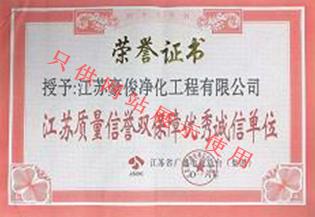 荣誉证书
授予:江苏豪俊净化工程有限公司
江苏质量信誉双保障优秀诚信单位
江苏省广播电视总台(集团)
JSBC
只供网站展示使用